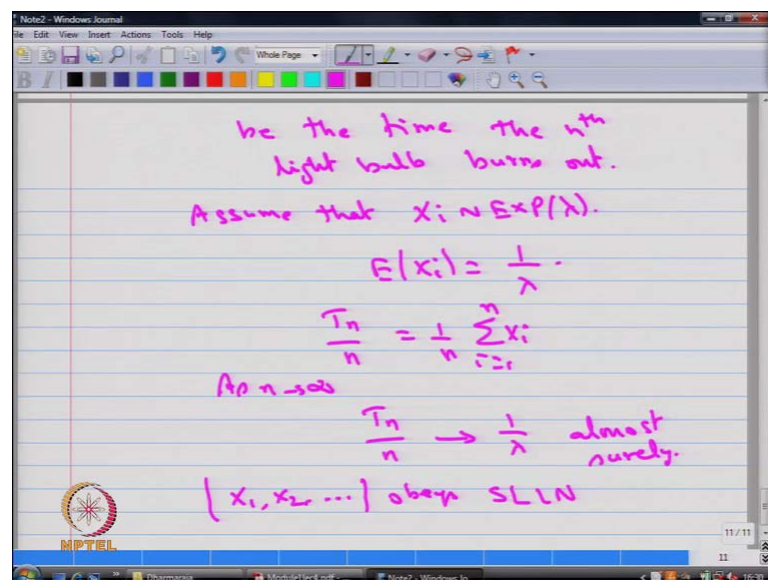 Note2 - Windows Journal
File Edit View Insert Actions Tools Help
Whole Page
B I
be the time the nth
light bulb burns out.
Assume that Xi ~ EXP(λ).
E(Xi) = 1/λ .
Tn/n = 1/n Σ_{i=1}^{n} Xi
As n→∞
Tn/n → 1/λ almost
surely.
{X1, X2, ...} obeys SLLN
NPTEL
11 / 11
11
Dharmaraja
Module1lec4.pdf - ...
Note2 - Windows Jo...
16:30